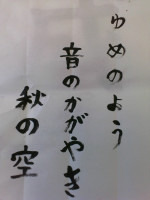 ゆめのよう
音のかがやき
秋の空